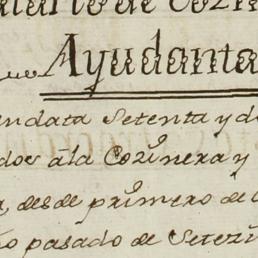 lario de Cozin
Ayudanta
endata Setenta y do
dos â la Cozinera y
, desde primero de
ño pasado de Setezi